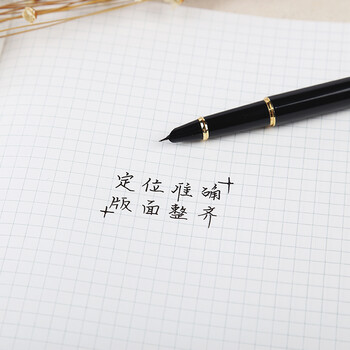 定位准确
版面整齐